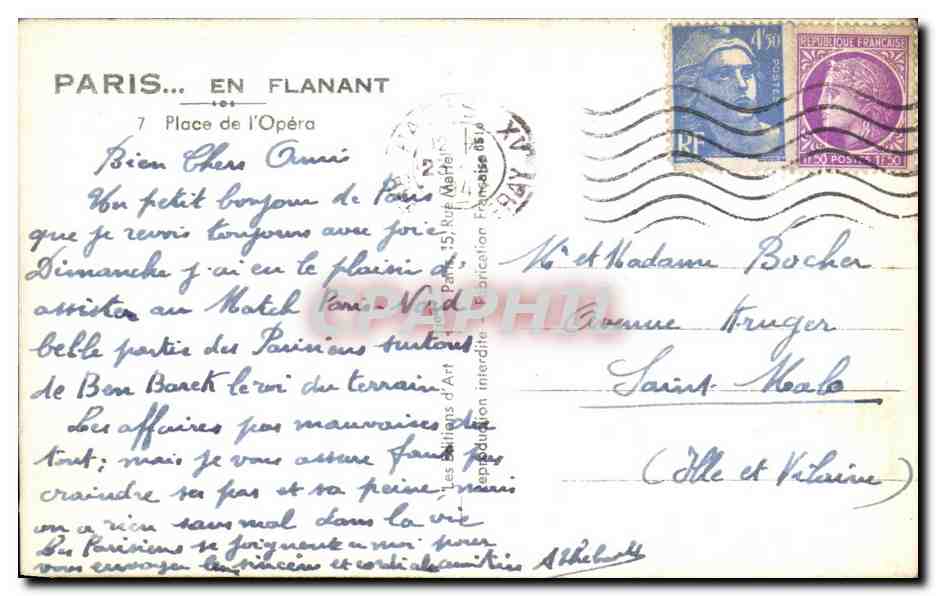 PARIS... EN FLANANT
7 Place de l'Opéra
Bien Chers Amis
Un petit bonjour de Paris
que je revois toujours avec joie
Dimanche j'ai eu le plaisir d'
assister au Match Paris-Nord
belle partie des Parisiens surtout
de Ben Barek le roi du terrain
Les affaires pas mauvaises du
tout; mais je vous assure faut pas
craindre ses pas et sa peine, mais
on a rien sans mal dans la vie
Les Parisiens se joignent a moi pour
vous envoyer les sincères et cordiales amitiés
Les Editions d'Art Paris, 15, Rue Martel
reproduction interdite - Fabrication Française
4f50
POSTES
RF
REPUBLIQUE FRANÇAISE
1f50 POSTES 1f50
PARIS XV
Mr et Madame Bocher
Avenue Kruger
Saint-Malo
(Ille et Vilaine)
CPAPHIL